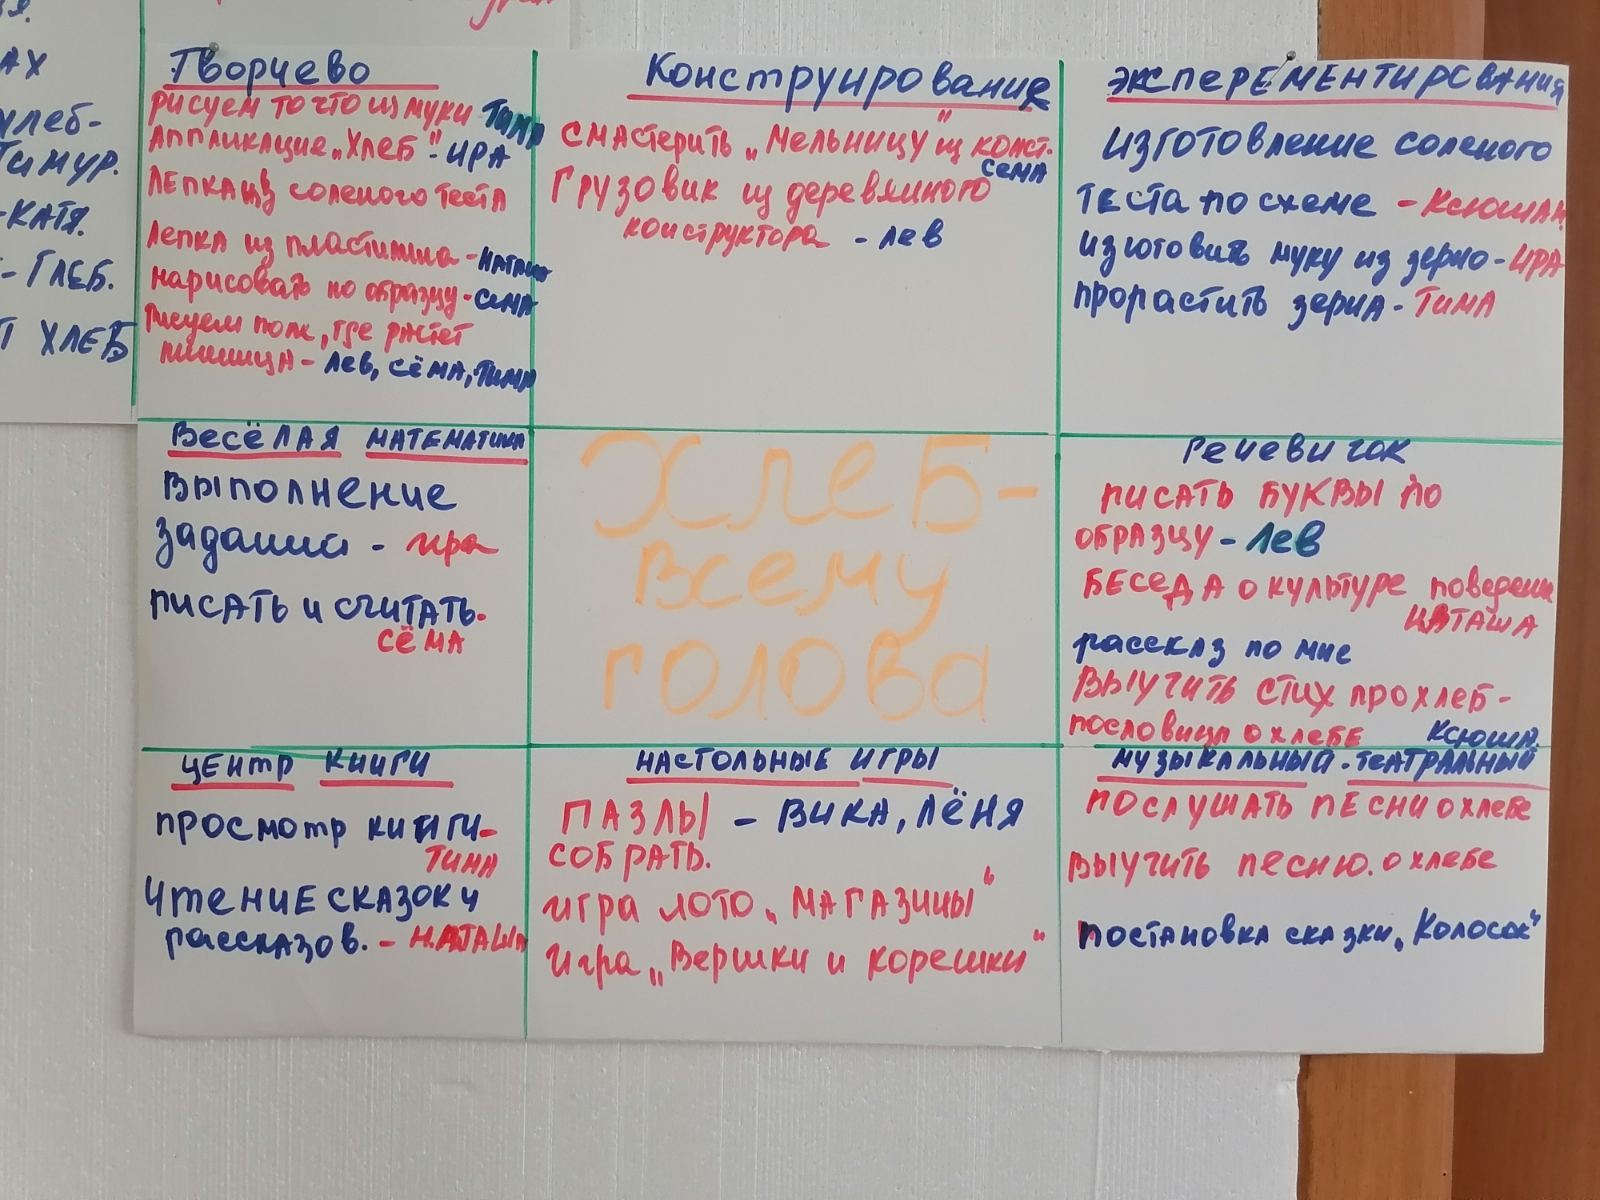 АХ
хлеб-
Тимур.
-КАТЯ.
- ГЛЕБ.
ХЛЕБ
Творчево
рисуем то что из муки - Тима
Аппликацие „Хлеб" - ИРА
ЛЕПКА из соленого теста
лепка из пластилина - НАТАША
нарисовать по образцу - СЕМА
Рисуем поле, где растет
пшеница - Лев, Сёма, Тима
Конструирование
СМАСТЕРИТЬ „Мельницу" из конст.
СЕМА
Грузовик из деревяного
конструктора - Лев
ЭКСПЕРЕМЕНТИРОВАНИЯ
ИЗГОТОВЛЕНИЕ соленого
ТЕСТА по схеме - Ксюша.
изготовить муку из зерно - ИРА
прорастить зерна - ТИМА
ВЕСЁЛАЯ МАТЕМАТИКА
ВЫПОЛНЕНИЕ
заданий - ира
ПИСАТЬ и СЧИТАТЬ-
СЁМА
ХЛЕБ-
всему
голова
Речевичок
ПИСАТЬ БУКВЫ ПО
ОБРАЗЦУ - Лев
БЕСЕДА о культуре поведения
НАТАША
рассказ по мне
ВЫУЧИТЬ СТИХ про хлеб -
пословицы о хлебе Ксюша.
ЦЕНТР КНИГИ
просмотр книги-
ТИМА
Чтение СКАЗОК и
рассказов. - НАТАША
НАСТОЛЬНЫЕ ИГРЫ
ПАЗЛЫ - ВИКА, ЛЁНЯ
СОБРАТЬ.
игра лото „МАГАЗИНЫ"
Игра „Вершки и корешки"
МУЗЫКАЛЬНЫЙ - ТЕАТРАЛЬНЫЙ
ПОСЛУШАТЬ ПЕСНИ О хлебе
ВЫУЧИТЬ песню. о хлебе
ПОСТАНОВКА сказки „Колосок"